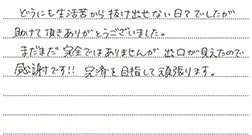 どうにも生活苦から抜け出せない日々でしたが
助けて頂きありがとうございました。
まだまだ完全ではありませんが出口が見えたので
感謝です!!完済を目指して頑張ります。